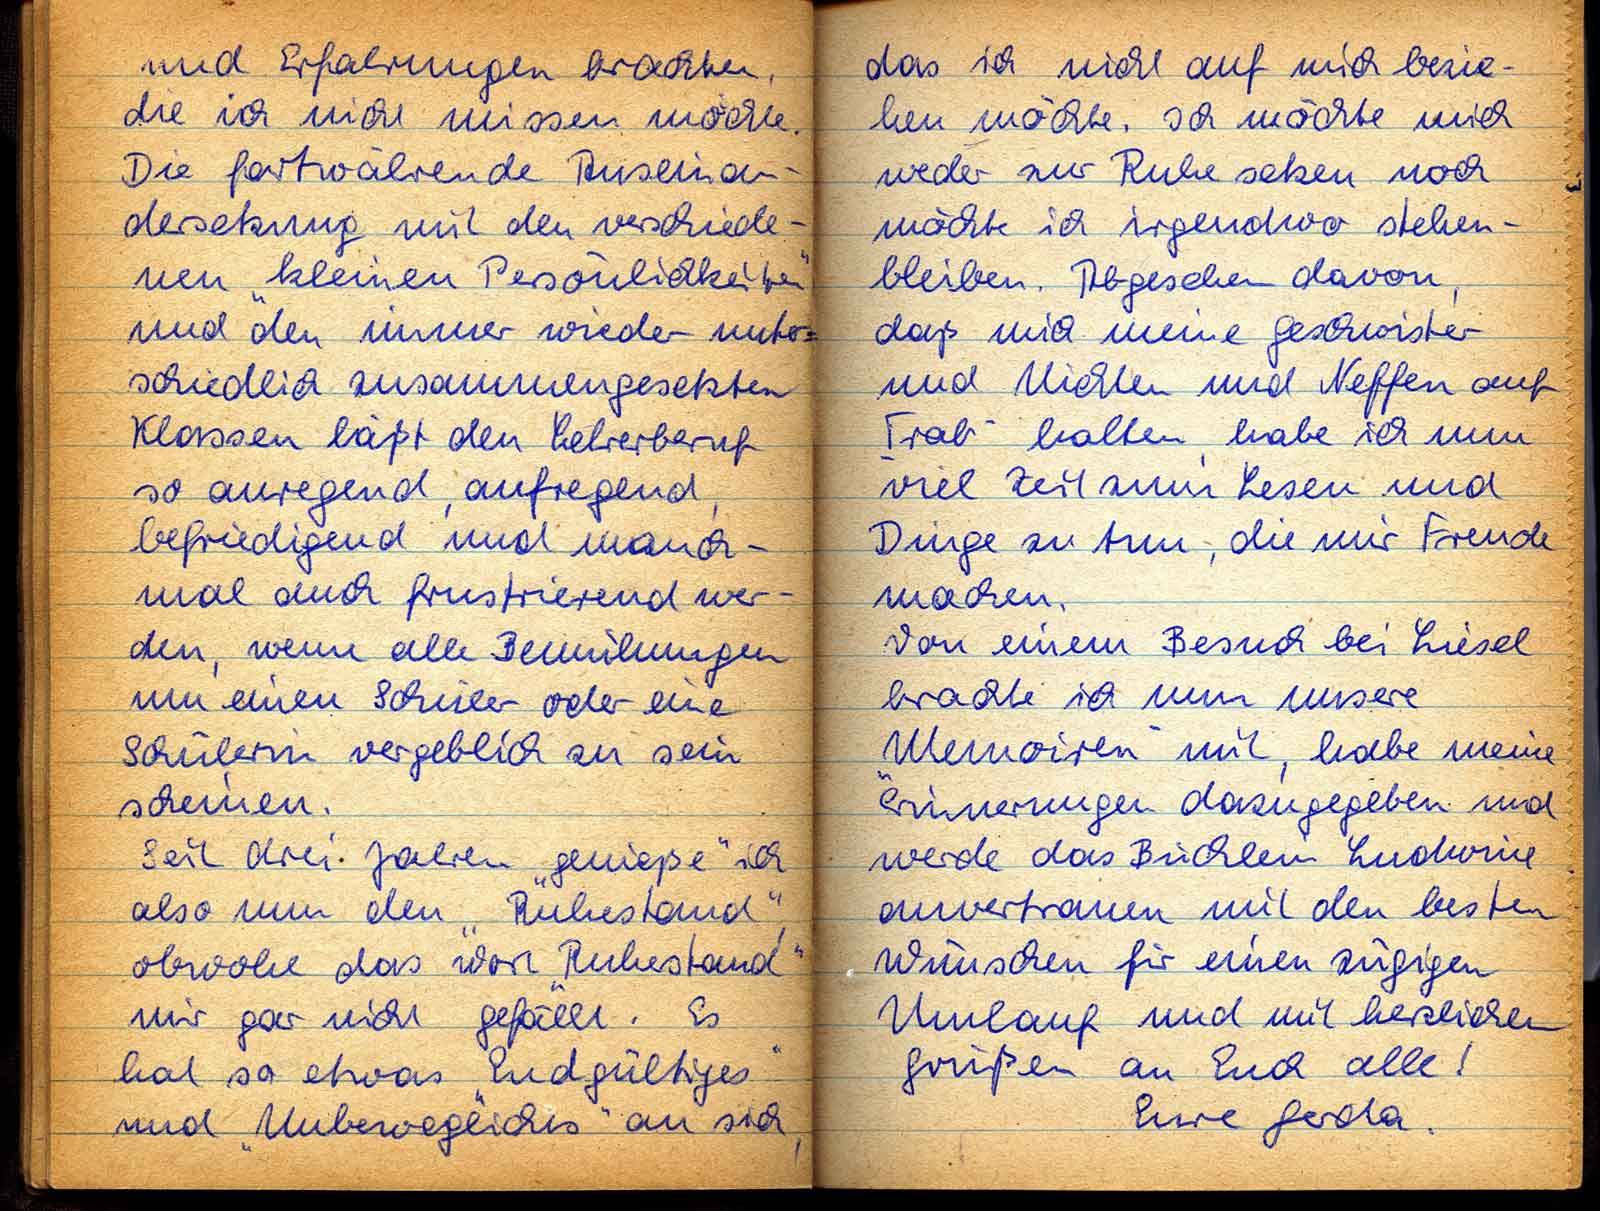 und Erfahrungen brachten,
die ich nicht missen möchte.
Die fortwährende Auseinan-
dersetzung mit den verschiede-
nen „kleinen Persönlichkeiten"
und den immer wieder unter-
schiedlich zusammengesetzten
Klassen läßt den Lehrerberuf
so anregend, aufregend,
befriedigend und manch-
mal auch frustrierend wer-
den, wenn alle Bemühungen
um einen Schüler oder eine
Schülerin vergeblich zu sein
scheinen.
Seit drei Jahren „genieße" ich
also nun den „Ruhestand",
obwohl das Wort „Ruhestand"
mir gar nicht gefällt. Es
hat so etwas „Endgültiges"
und „Unbewegliches" an sich,
das ich nicht auf mich bezie-
hen möchte. Ich möchte mich
weder zur Ruhe setzen noch
möchte ich irgendwo stehen-
bleiben. Abgesehen davon,
daß mich meine Geschwister
und Nichten und Neffen „auf
Trab" halten, habe ich nun
viel Zeit zum Lesen und
Dinge zu tun, die mir Freude
machen.
Von einem Besuch bei Liesel
brachte ich nun unsere
„Memoiren" mit, habe meine
Erinnerungen dazugegeben und
werde das Büchlein Ludwine
anvertrauen mit den besten
Wünschen für einen zügigen
Umlauf und mit herzlichen
Grüßen an Euch alle!
Eure Gerda.